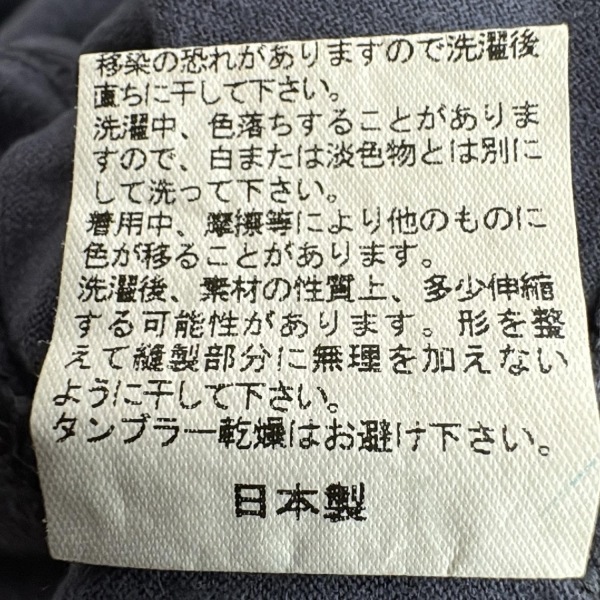 移染の恐れがありますので洗濯後
直ちに干して下さい。
洗濯中、色落ちすることがありま
すので、白または淡色物とは別に
して洗って下さい。
着用中、摩擦等により他のものに
色が移ることがあります。
洗濯後、素材の性質上、多少伸縮
する可能性があります。形を整
えて縫製部分に無理を加えない
ように干して下さい。
タンブラー乾燥はお避け下さい。
日本製